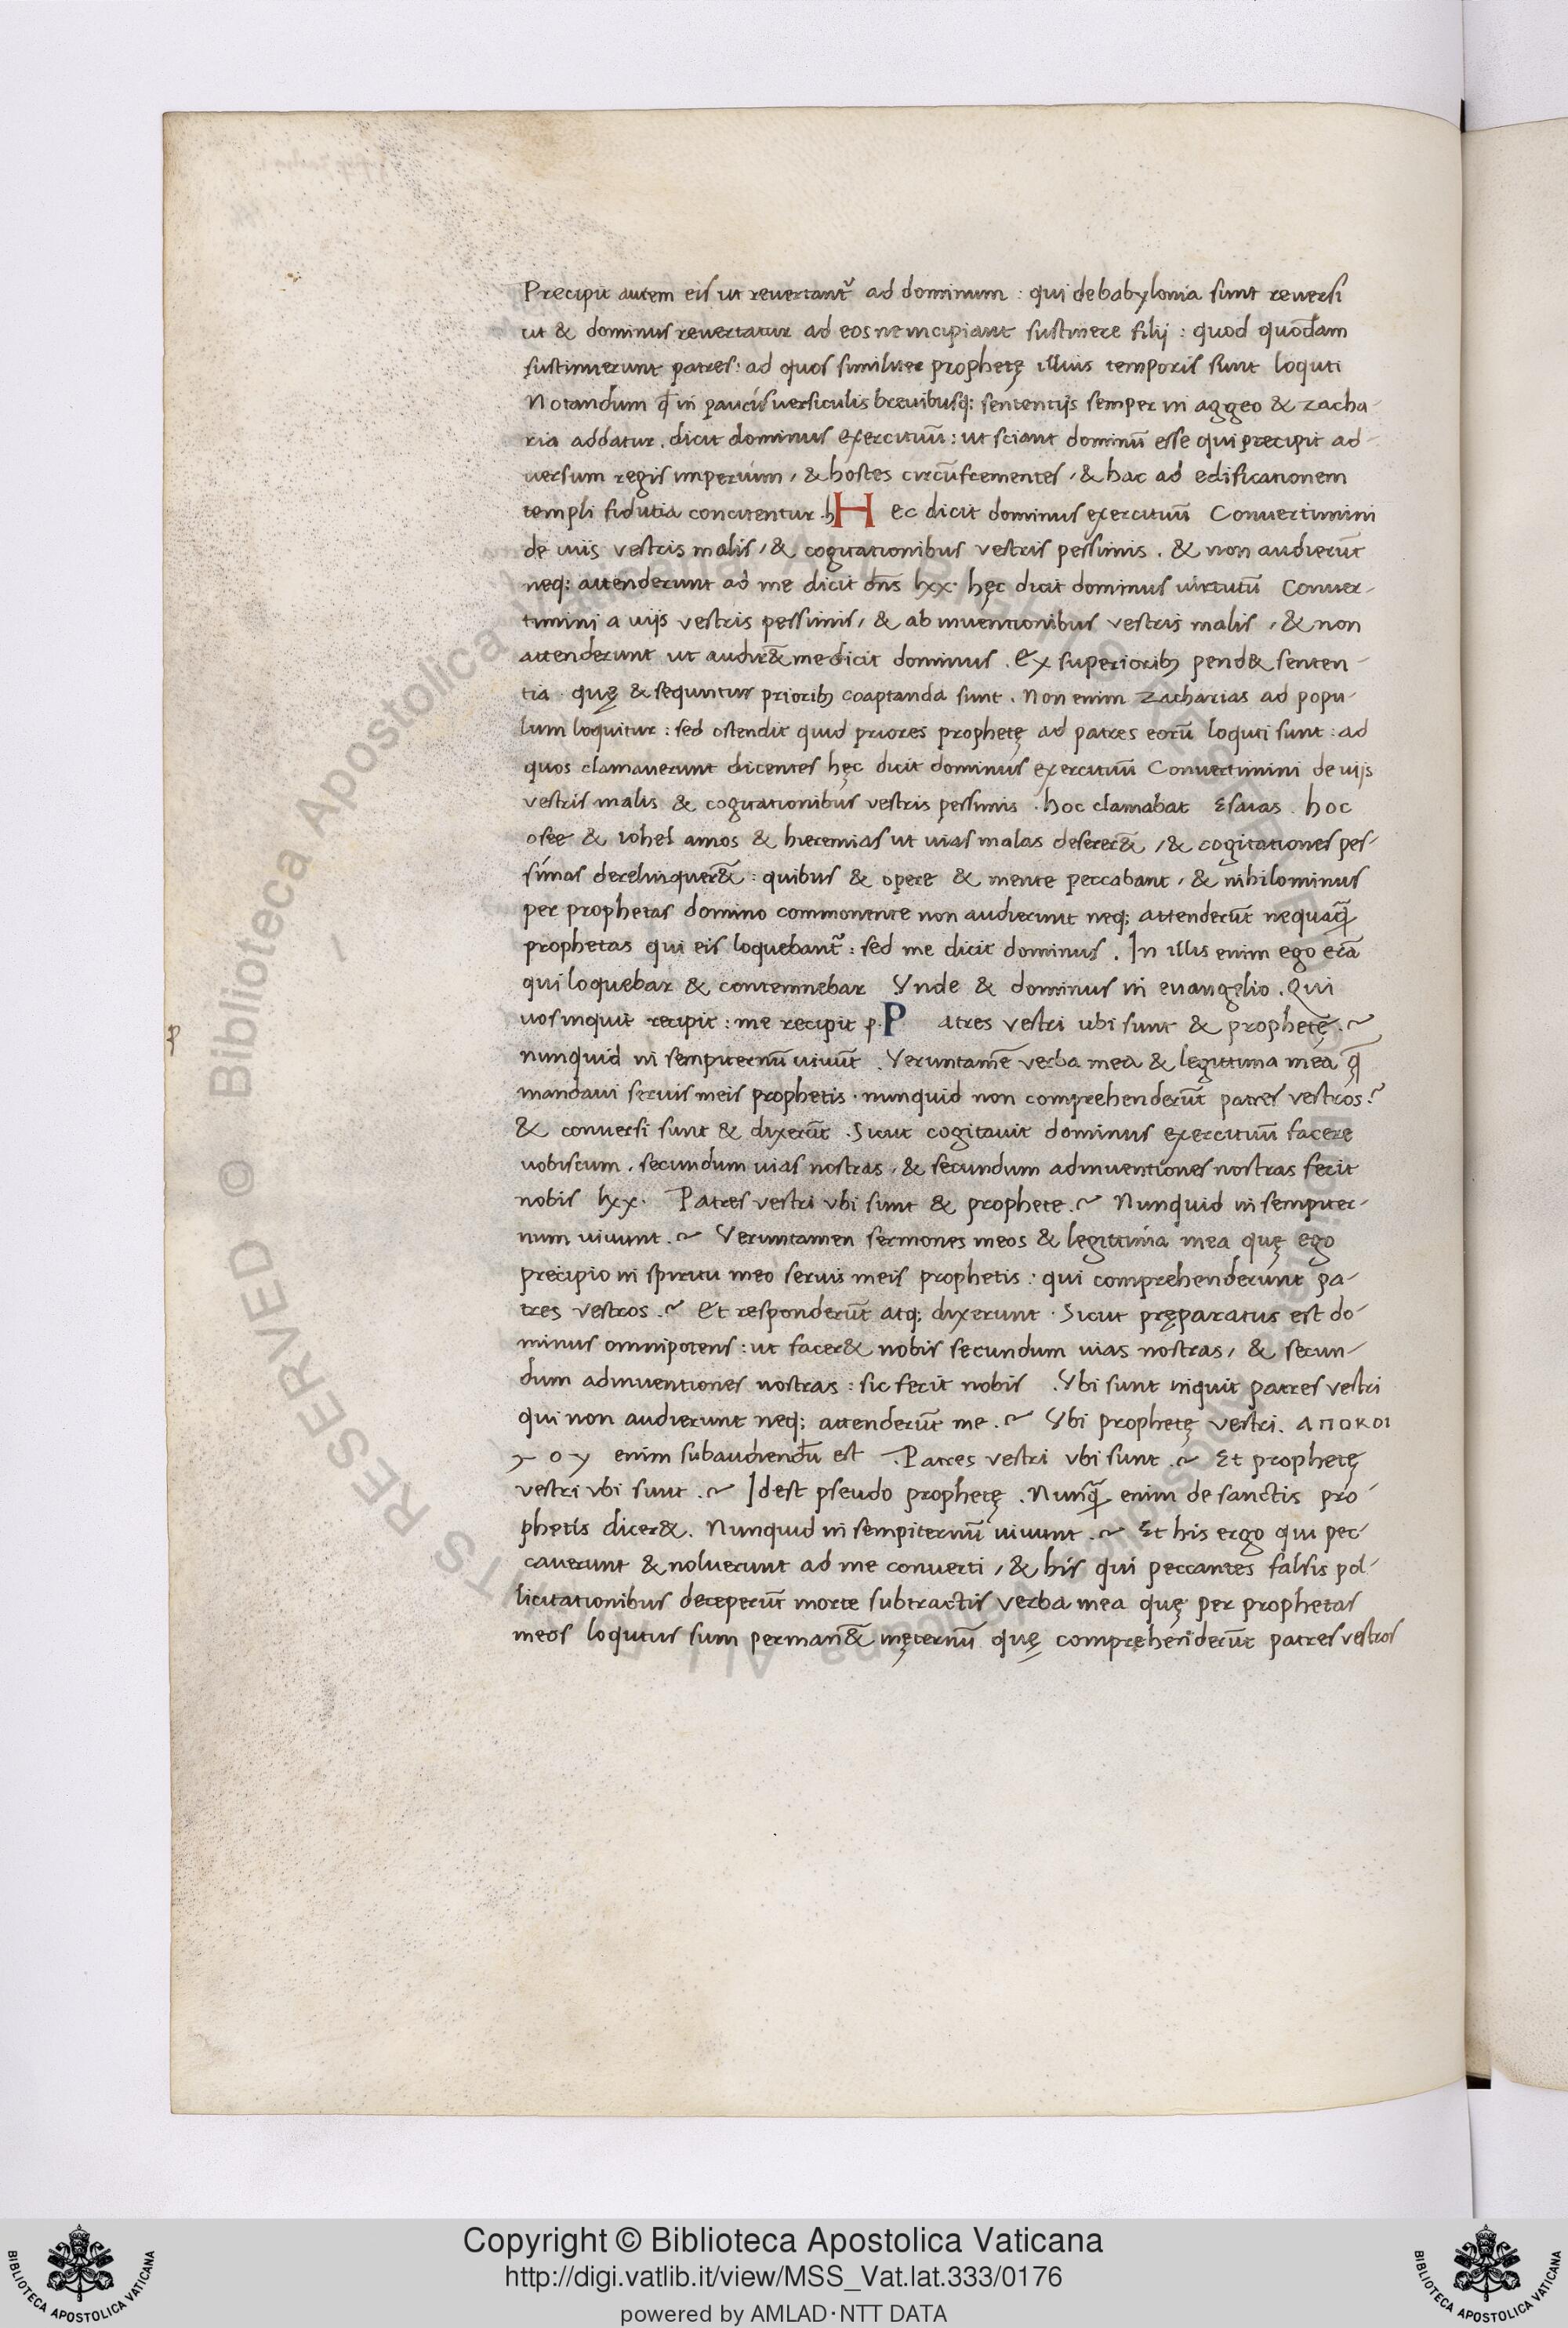 Precipit autem eis ut reuertant᷑ ad dominum : qui de babylonia sunt reuersi
ut & dominus reuertatur ad eos ne incipiant sustinere filij : quod quōdam
sustinuerunt patres : ad quos similiter prophetę illius temporis sunt loquti
Notandum qd̄ in paucis uersiculis breuibusq; sententijs semper in aggeo & zacha-
ria addatur . dicit dominus exercituū : ut sciant dominū esse qui precipit ad-
uersum regis imperium , & hostes circūfrementes , & hac ad edificationem
templi fidutia concitentur . h H ec dicit dominus exercituū Conuertimini
de uiis vestris malis , & cogitationibus vestris pessimis . & non audierūt
neq; attenderunt ad me dicit dn̄s lxx . hęc dicit dominus uirtutū Conuer-
timini a uijs vestris pessimis , & ab inuentionibus vestris malis , & non
attenderunt ut audir&̄ me dicit dominus . Ex superiorib; pend& senten-
tia . quę & sequntur priorib; coaptanda sunt . Non enim zacharias ad popu-
lum loquitur : sed ostendit quid priores prophetę ad patres eorū loquti sunt : ad
quos clamauerunt dicentes hęc dicit dominus exercituū Conuertimini de uijs
vestris malis & cogitationibus vestris pessimis . hoc clamabat Esaias . hoc
osee & iohel amos & hieremias ut uias malas deserer&̄ , & cogitationes pes-
simas derelinquer&̄ : quibus & opere & mente peccabant , & nihilominus
per prophetas domino commonente non audierunt neq; attenderūt nequaq̄
prophetas qui eis loquebant᷑ : sed me dicit dominus . In illis enim ego erā
qui loquebar & contemnebar Vnde & dominus in euangelio . Qui
uos inquit recipit : me recipit p . P atres vestri ubi sunt & prophetę . ~
nunquid in sempiternū uiuūt . Veruntamē verba mea & legittima mea q̄
mandaui seruis meis prophetis . nunquid non comprehenderūt patres vestros ?
& conuersi sunt & dixerūt . Sicut cogitauit dominus exercituū facere
uobiscum . secundum uias nostras , & secundum adinuentiones nostras fecit
nobis lxx . Patres vestri vbi sunt & prophete . ~ Nunquid in sempiter-
num uiuunt . ~ Veruntamen sermones meos & legittima mea quę ego
precipio in spiritu meo seruis meis prophetis : qui comprehenderunt pa-
tres vestros . ~ Et responderūt atq; dixerunt . Sicut pręparatus est do-
minus omnipotens : ut facer& nobis secundum uias nostras , & secun-
dum adinuentiones nostras : sic fecit nobis . Vbi sunt inquit patres vestri
qui non audierunt neq; attenderūt me . ~ Vbi prophetę vestri . ΑΠΟΚΟΙ
Ν Ο Υ enim subaudiendū est . Patres vestri vbi sunt . ~ Et prophetę
vestri vbi sunt . ~ Idest pseudo prophetę . Nunq̄ enim de sanctis pro-
phetis dicer& . Nunquid in sempiternū uiuunt . ~ Et his ergo qui pec-
cauerunt & noluerunt ad me conuerti , & his qui peccantes falsis pol-
licitationibus deceperūt morte subtractis verba mea quę per prophetas
meos loqutus sum perman&̄ inęternū quę comprehenderūt patres vestros
p
Copyright © Biblioteca Apostolica Vaticana
http://digi.vatlib.it/view/MSS_Vat.lat.333/0176
powered by AMLAD·NTT DATA
BIBLIOTECA APOSTOLICA VATICANA
BIBLIOTECA APOSTOLICA VATICANA